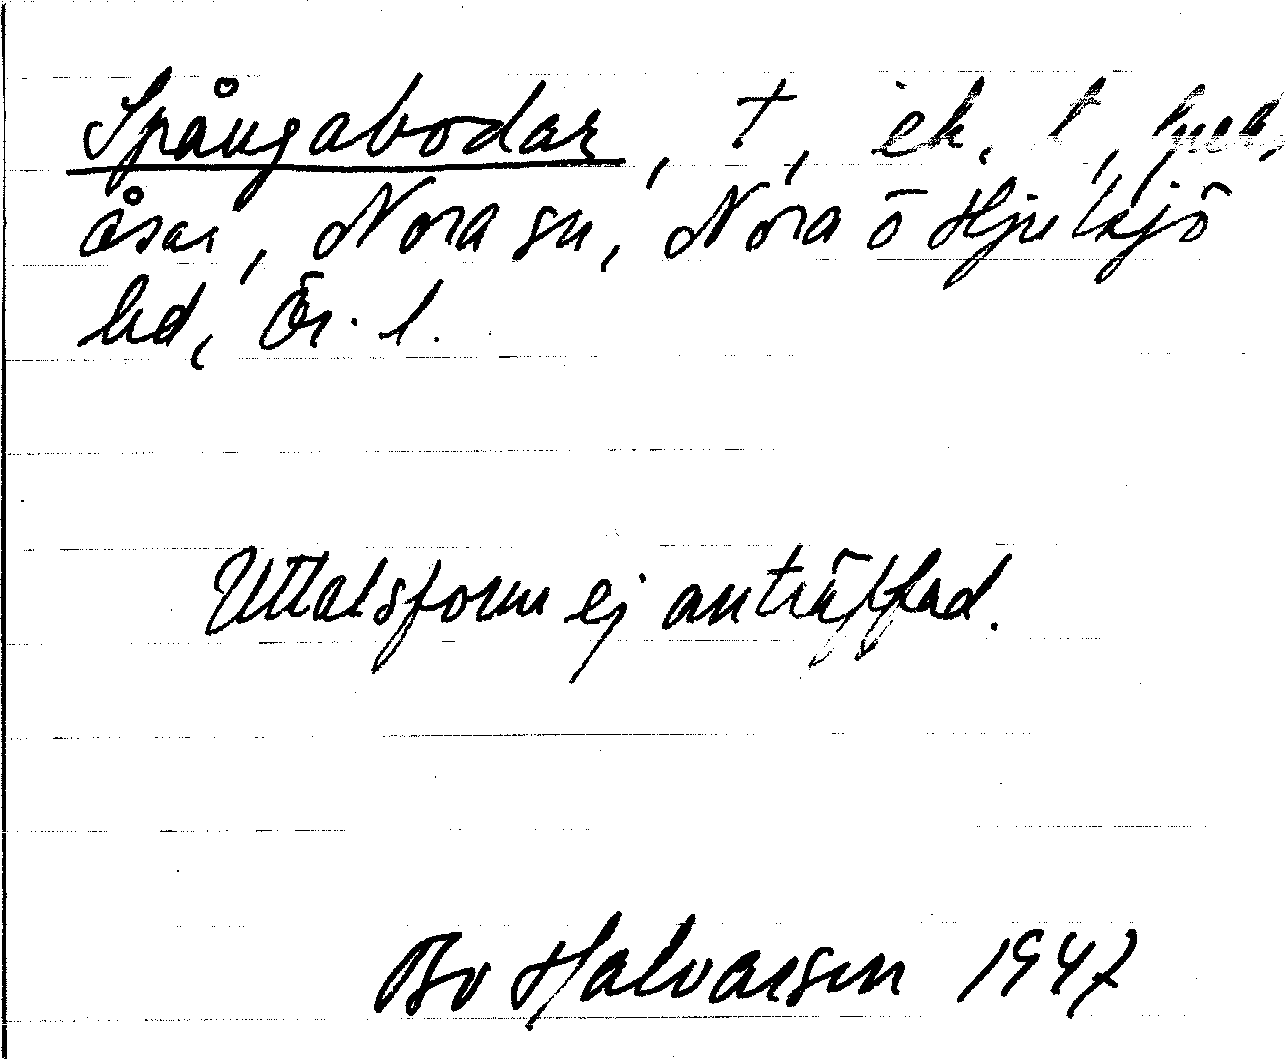 Spångabodar, †, ek. t.
åsar, Nora sn, Nora o Hjulsjö
hd, Ör. l.
Uttalsform ej anträffad.
Bo Halvarson 1947